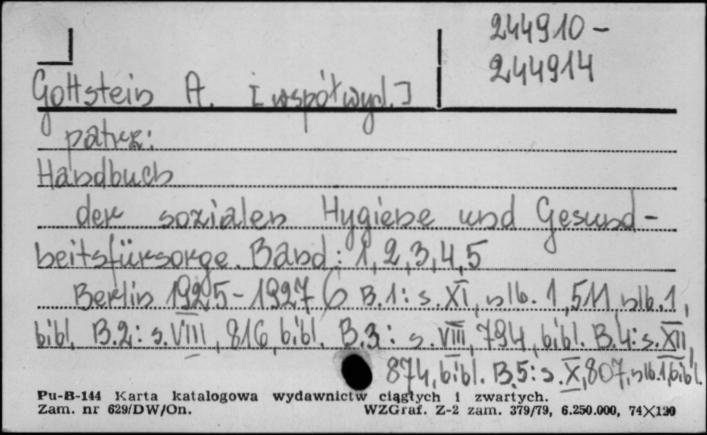 244910 -
244914
Gottstein A. [współwyd.]
patrz:
Handbuch
der sozialen Hygiene und Gesund-
heitsfürsorge. Band: 1, 2, 3, 4, 5
Berlin 1925-1927 B.1: s. XI, nlb. 1, 511, nlb. 1,
bibl. B.2: s. VIII, 816, bibl. B.3: s. VIII, 794, bibl. B.4: s. XII,
874, bibl. B.5: s. X, 807, nlb. 1, bibl.
Pu-B-144 Karta katalogowa wydawnictw ciągłych i zwartych.
Zam. nr 629/DW/On. WZGraf. Z-2 zam. 379/79, 6.250.000, 74X120